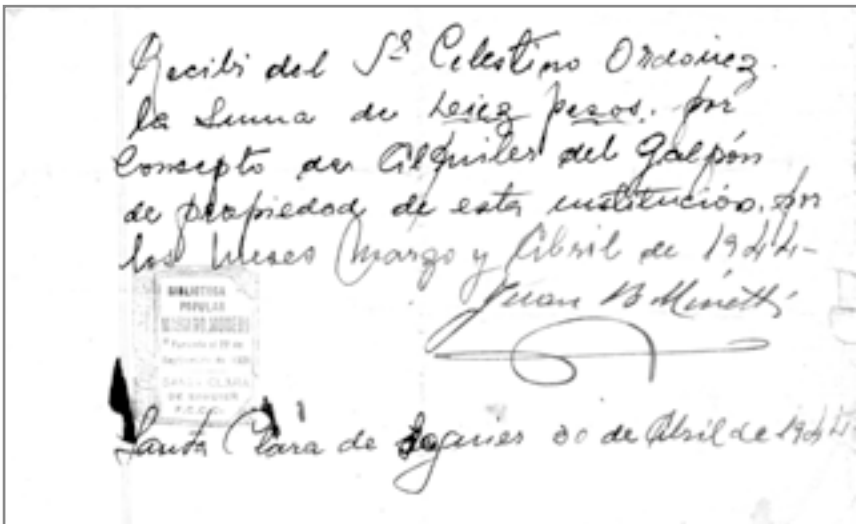 Recibi del Sr Celestino Ordoñez.
la Suma de Deiez pesos. por
Consepto de Alquiler del Galpón
de propiedad de esta institución, por
los meses Marzo y Abril de 1944-
Juan B Minetti
BIBLIOTECA
POPULAR
SANTA CLARA
DE
F.C.C.A.
Santa Clara de Saguier 30 de Abril de 1944-